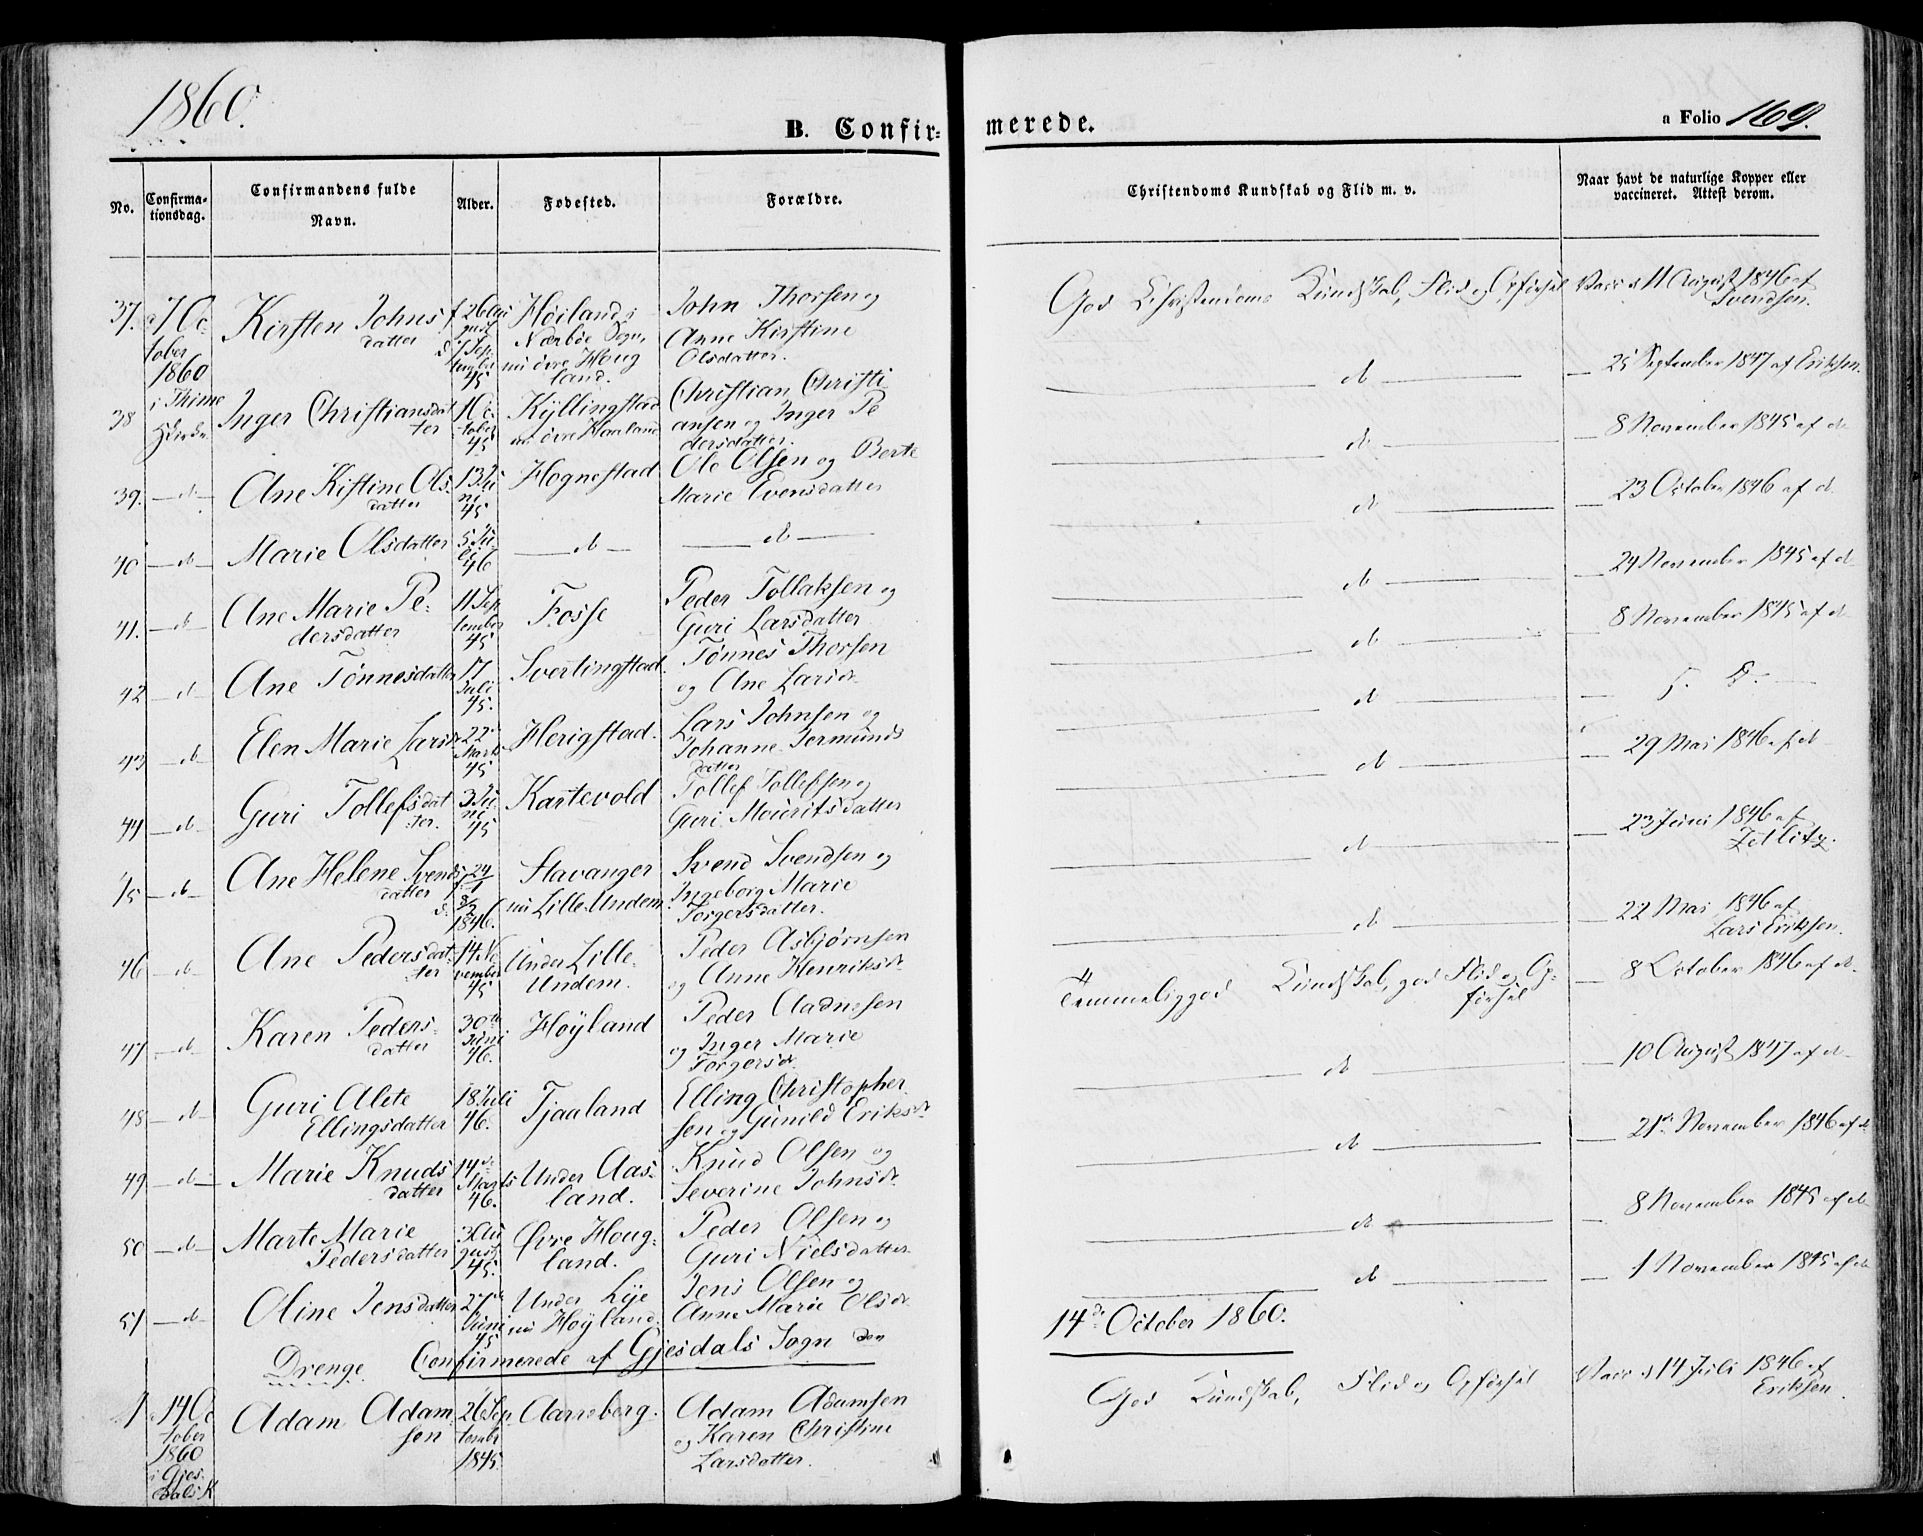 1860.
B. Confir-
merede.
a Folio 169.
No.
Confirma-
tionsdag.
Confirmandens fulde
Navn.
Alder.
Fødested.
Forældre.
Christendoms Kundskab og Flid m. v.
Naar havt de naturlige Kopper eller
vaccineret. Attest derom.
37.
7 Oc
tober
1860
i Thime
Kirsten Johns
datter
f 26 Au
gust
d 7 Sep
tember
45
Høiland i
Nærbøe Sogn,
nu øvre Houg
land.
John Thorsen og
Anne Kirstine
Olsdatter.
God Christendoms Kundskab, Flid og Opførsel
Vacc. d 11 August 1846 af
Svendsen.
38
Inger Christiansdat
ter
1 Oc
tober
45
Kyllingstad
nu øvre Haaland
Christian Christi
ansen og Inger Pe
dersdatter.
d
25 September 1847 af Eriksen.
39. d
Ane Kistine Ols
datter
13 Ju
ni
45
Hognestad
Ole Olsen og Berte
Marie Evensdatter
d
8 November 1845 af d
40 d
Marie Olsdatter
5 Ju
li
46
d
d
d
23 October 1846 af d.
41. d
Ane Marie Pe-
dersdatter
11 Sep
tember
45
Fosse
Peder Tollaksen og
Guri Larsdatter
d
24 November 1845 af d
42 d
Ane Tönnesdatter
17
Juli
45.
Svertingstad.
Tönnes Thorsen
og Ane Larsd.
d
8 November 1845 af d
43 d
Elen Marie Larsd
22
Marts
45
Herigstad.
Lars Johnsen og
Johanne Jermunds
datter
d
44 d
Guri Tollefsdat
ter.
3 Ju
ni
45
Kartevold
Tollef Tollefsen og
Guri Mouritsdatter
d
29 Mai 1846 af d
45 d
Ane Helene Svends
datter
f. 24/1
d. 8/2
1846.
Stavanger
nu Lille Undem.
Svend Svendsen og
Ingeborg Marie
Torgersdatter.
d
23 Juni 1846 af
Zetlitz.
46 d
Ane Pedersdat-
ter
14 No
vember
45
Under Lille
Undem.
Peder Asbjørnsen
og Anne Henriksd.
d
22 Mai 1846 af
Lars Eriksen.
47 d
Karen Peders-
datter
30te
Juni
46.
Høyland
Peder Aadnesen
og Inger Marie
Torgersd.
Temmelig god Kundskab, god Flid og Op-
førsel
8 October 1846 af d.
48 d
Guri Alete
Ellingsdatter
18 Juli
46.
Tjaaland
Elling Christopher
sen og Gunild Eriksd
d
10 August 1847 af d
49 d
Marie Knuds
datter
14de
Marts
46.
Under Aas-
land.
Knud Olsen og
Severine Johnsd.
d
21de November 1846 af d
50 d
Marte Marie
Pedersdatter
3 Au
gust
45.
Øvre Houg-
land.
Peder Olsen og
Guri Nielsdatter
d
8 November 1845 af d
51 d
Oline Jensdatter
27de
Juni
45
Under Lye
nu Høyland.
Jens Olsen og
Anne Marie Olsd.
d
1 November 1845 af d
Drenge Confirmerede af Gjesdals Sogn den
14de October 1860.
1
14 Oc
tober
1860
i Gjes-
dals K
Adam Adam
sen
26 Sep
tembr
1845.
Aarreberg.
Adam Adamsen
og Karen Christine
Larsdatter.
God Kundskab, Flid og Opførsel
Vacc. d 14 Juli 1846 af
Eriksen.